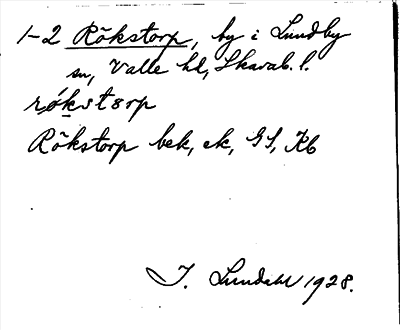 1-2 Rökstorp, by i Lundby
sn, Valle hd, Skarab. l.
rǿkstɘrp
Rökstorp bek, ek, GS, Kb
I. Lundahl 1928.